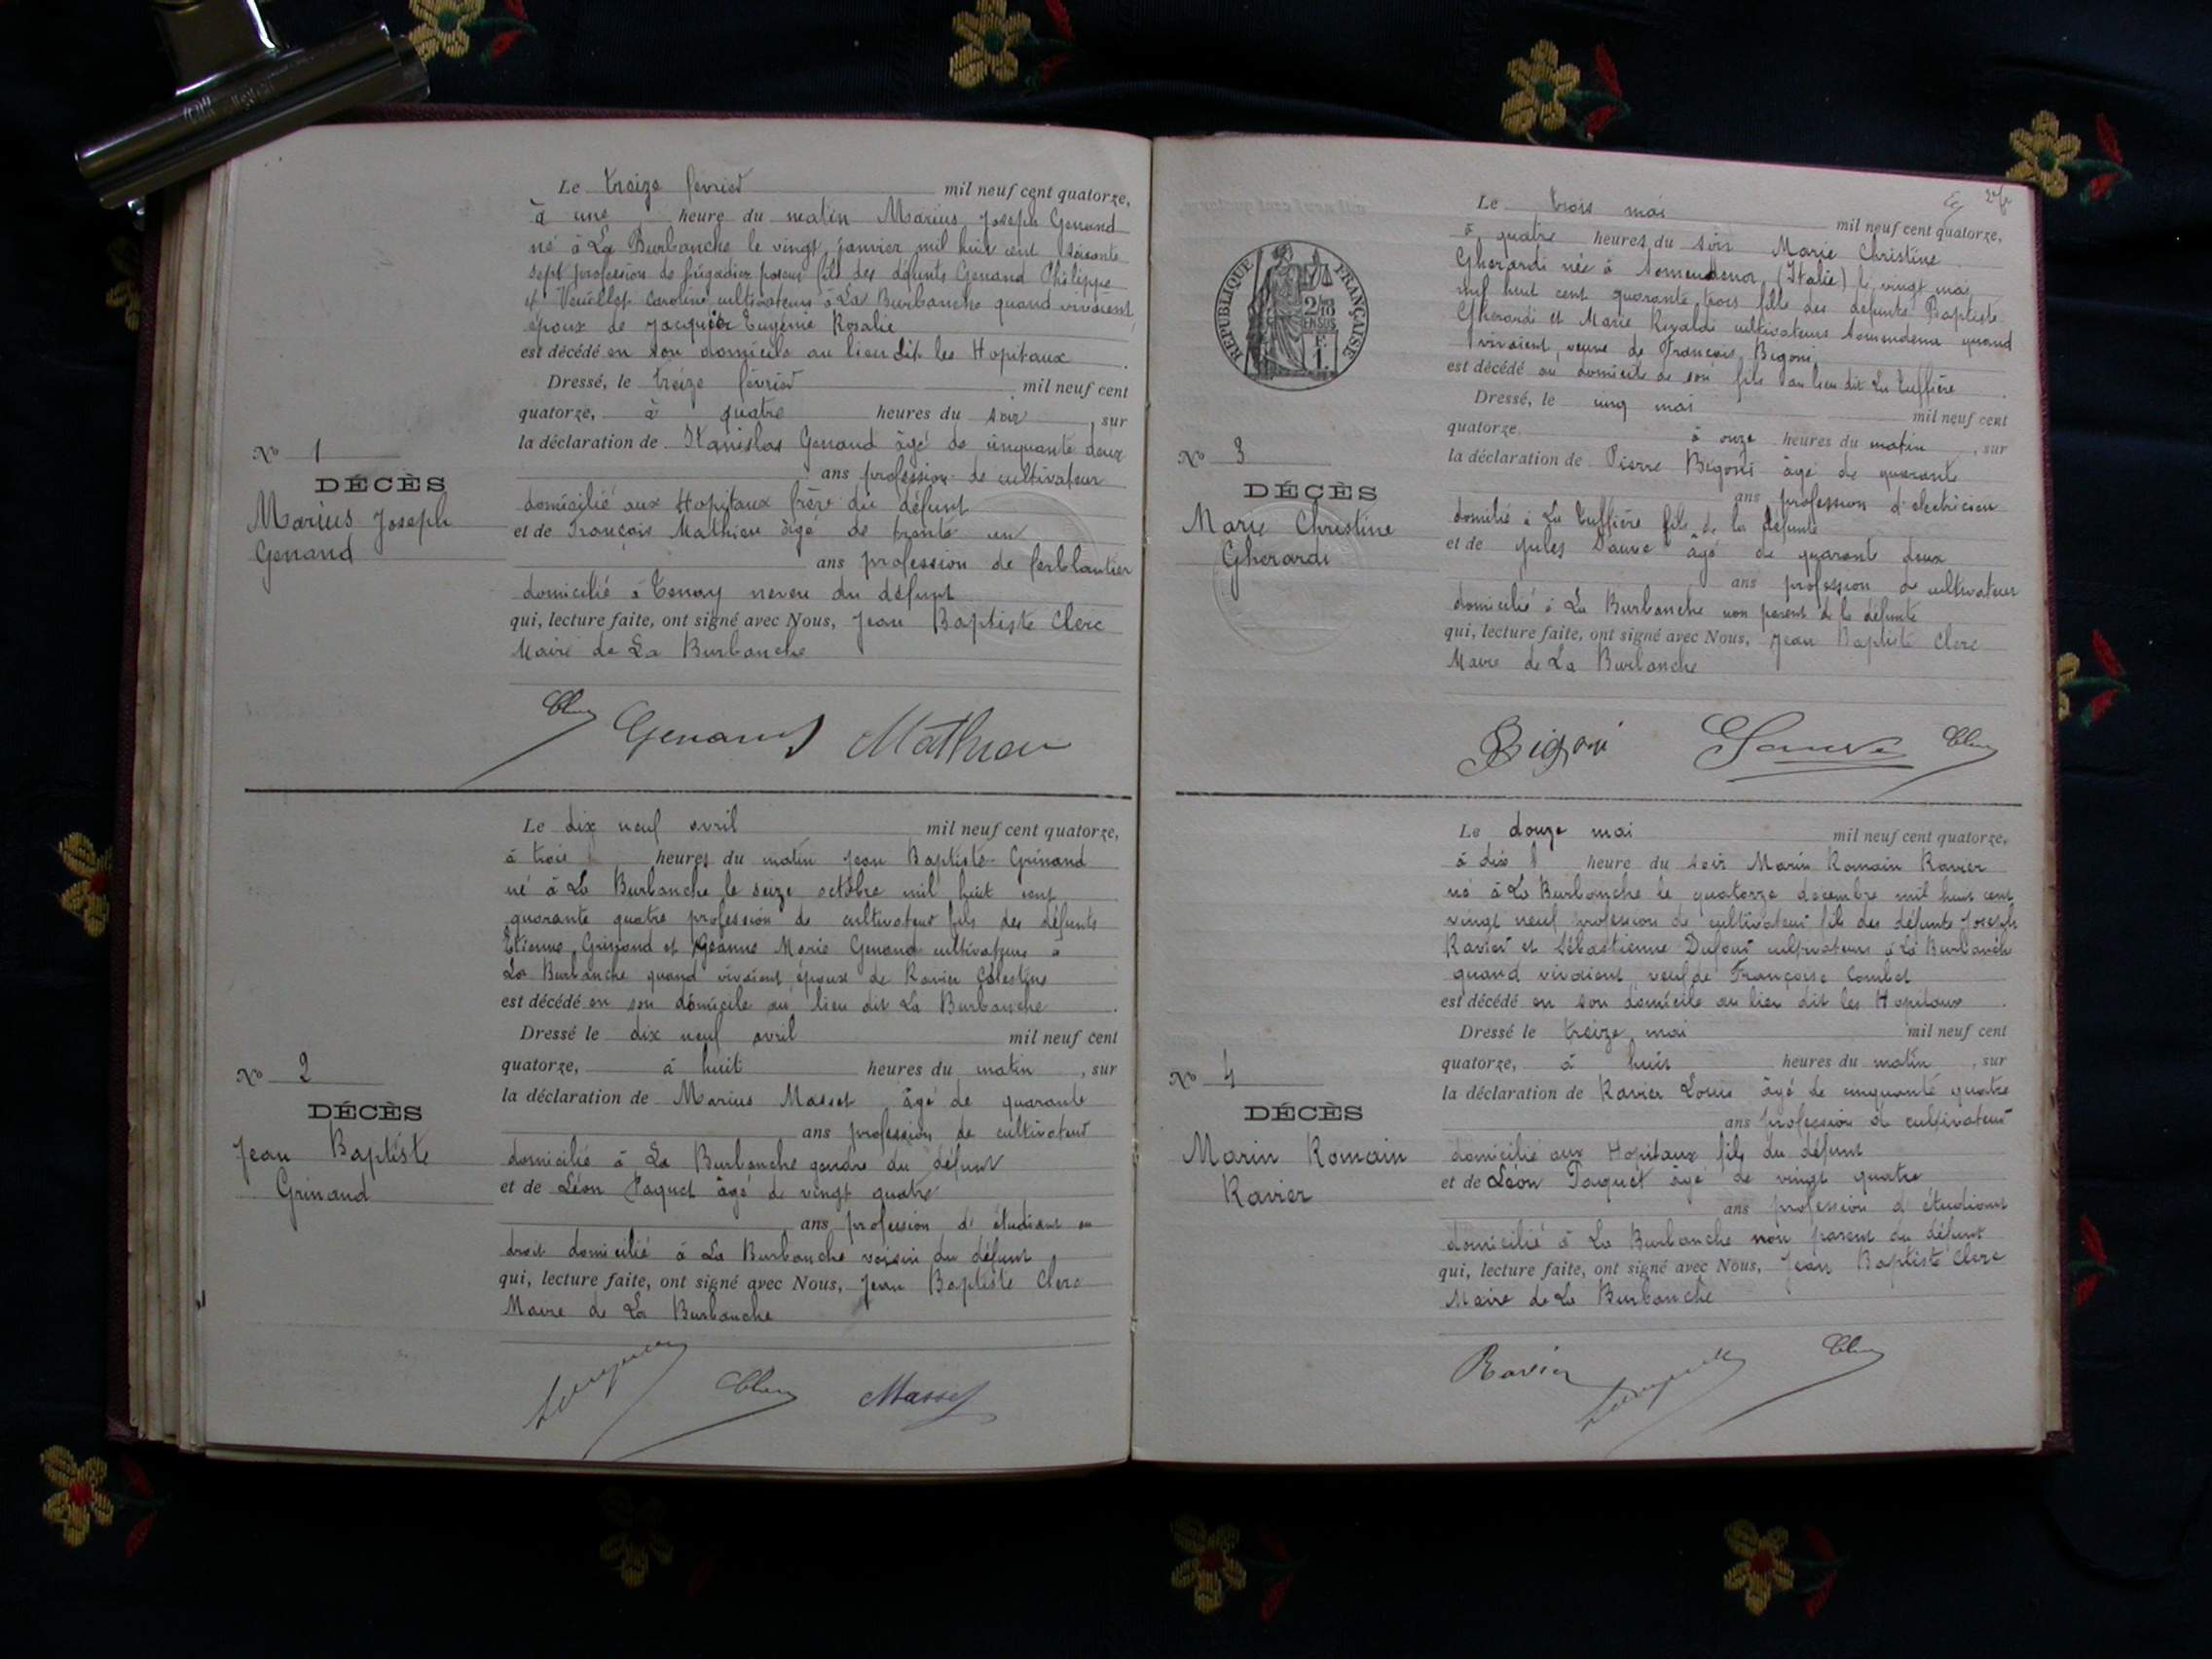 Le treize février mil neuf cent quatorze,
à une heure du matin Marius Joseph Genand
né à La Burbanche le vingt janvier mil huit cent soixante
sept profession de brigadier poseur fils des défunts Genand Philippe
et Veuillet Caroline cultivateurs à La Burbanche quand vivaient
époux de Jacquier Eugénie Rosalie
est décédé en son domicile au lieu dit les Hopitaux
Dressé, le treize février mil neuf cent
quatorze, à quatre heures du soir, sur
la déclaration de Stanislas Genand âgé de cinquante deux
ans profession de cultivateur
domicilié aux Hopitaux frère du défunt
et de François Mathieu âgé de trente un
ans profession de ferblantier
domicilié à Tenay neveu du défunt
qui, lecture faite, ont signé avec Nous, Jean Baptiste Clerc
Maire de La Burbanche
No 1
DÉCÈS
Marius Joseph
Genand
Clerc Genand Mathieu
Le dix neuf avril mil neuf cent quatorze,
à trois heures du matin Jean Baptiste Grinand
né à La Burbanche le seize octobre mil huit cent
quarante quatre profession de cultivateur fils des défunts
Etienne Grinand et Jeanne Marie Genand cultivateurs à
La Burbanche quand vivaient, époux de Ravier Célestine
est décédé en son domicile au lieu dit La Burbanche.
Dressé le dix neuf avril mil neuf cent
quatorze, à huit heures du matin, sur
la déclaration de Marius Masset âgé de quarante
ans profession de cultivateur
domicilié à La Burbanche gendre du défunt
et de Léon Paquet âgé de vingt quatre
ans profession d'étudiant en
droit domicilié à La Burbanche voisin du défunt
qui, lecture faite, ont signé avec Nous, Jean Baptiste Clerc
Maire de La Burbanche
No 2
DÉCÈS
Jean Baptiste
Grinand
Clerc Masset
RÉPUBLIQUE FRANÇAISE
2/10 EN SUS
1 F.
Le trois mai mil neuf cent quatorze,
à quatre heures du soir Marie Christine
Gherardi née à Somendenna (Italie) le vingt mai
mil huit cent quarante trois fille des défunts Baptiste
Gherardi et Marie Rivaldi cultivateurs Somendena quand
vivaient, veuve de François Bigoni
est décédé au domicile de son fils au lieu dit La Tuffière.
Dressé, le cinq mai mil neuf cent
quatorze. à onze heures du matin, sur
la déclaration de Pierre Bigoni âgé de quarante
ans profession d'electricien
domilié à La Tuffière fils de la défunte
et de Jules Sauve âgé de quarant deux
ans profession de cultivateur
domicilié à La Burbanche non parent de la défunte
qui, lecture faite, ont signé avec Nous, Jean Baptiste Clerc
Maire de La Burbanche
No 3
DÉCÈS
Marie Christine
Gherardi
Bigoni Sauve Clerc
Le douze mai mil neuf cent quatorze,
à dix heure du soir Marin Romain Ravier
né à La Burbanche le quatorze decembre mil huit cent
vingt neuf profession de cultivateur fils des défunts Joseph
Ravier et Sébastienne Dufour cultivateurs à La Burbanche
quand vivaient, veuf de Françoise Combet
est décédé en son domicile au lieu dit les Hopitaux.
Dressé le treize mai mil neuf cent
quatorze, à huit heures du matin, sur
la déclaration de Ravier Louis âgé de cinquante quatre
ans profession de cultivateur
domicilié aux Hopitaux fils du défunt
et de Léon Paquet âgé de vingt quatre
ans profession d'étudiant
domicilié à La Burbanche non parent du défunt
qui, lecture faite, ont signé avec Nous, Jean Baptiste Clerc
Maire de La Burbanche
No 4
DÉCÈS
Marin Romain
Ravier
Ravier Clerc